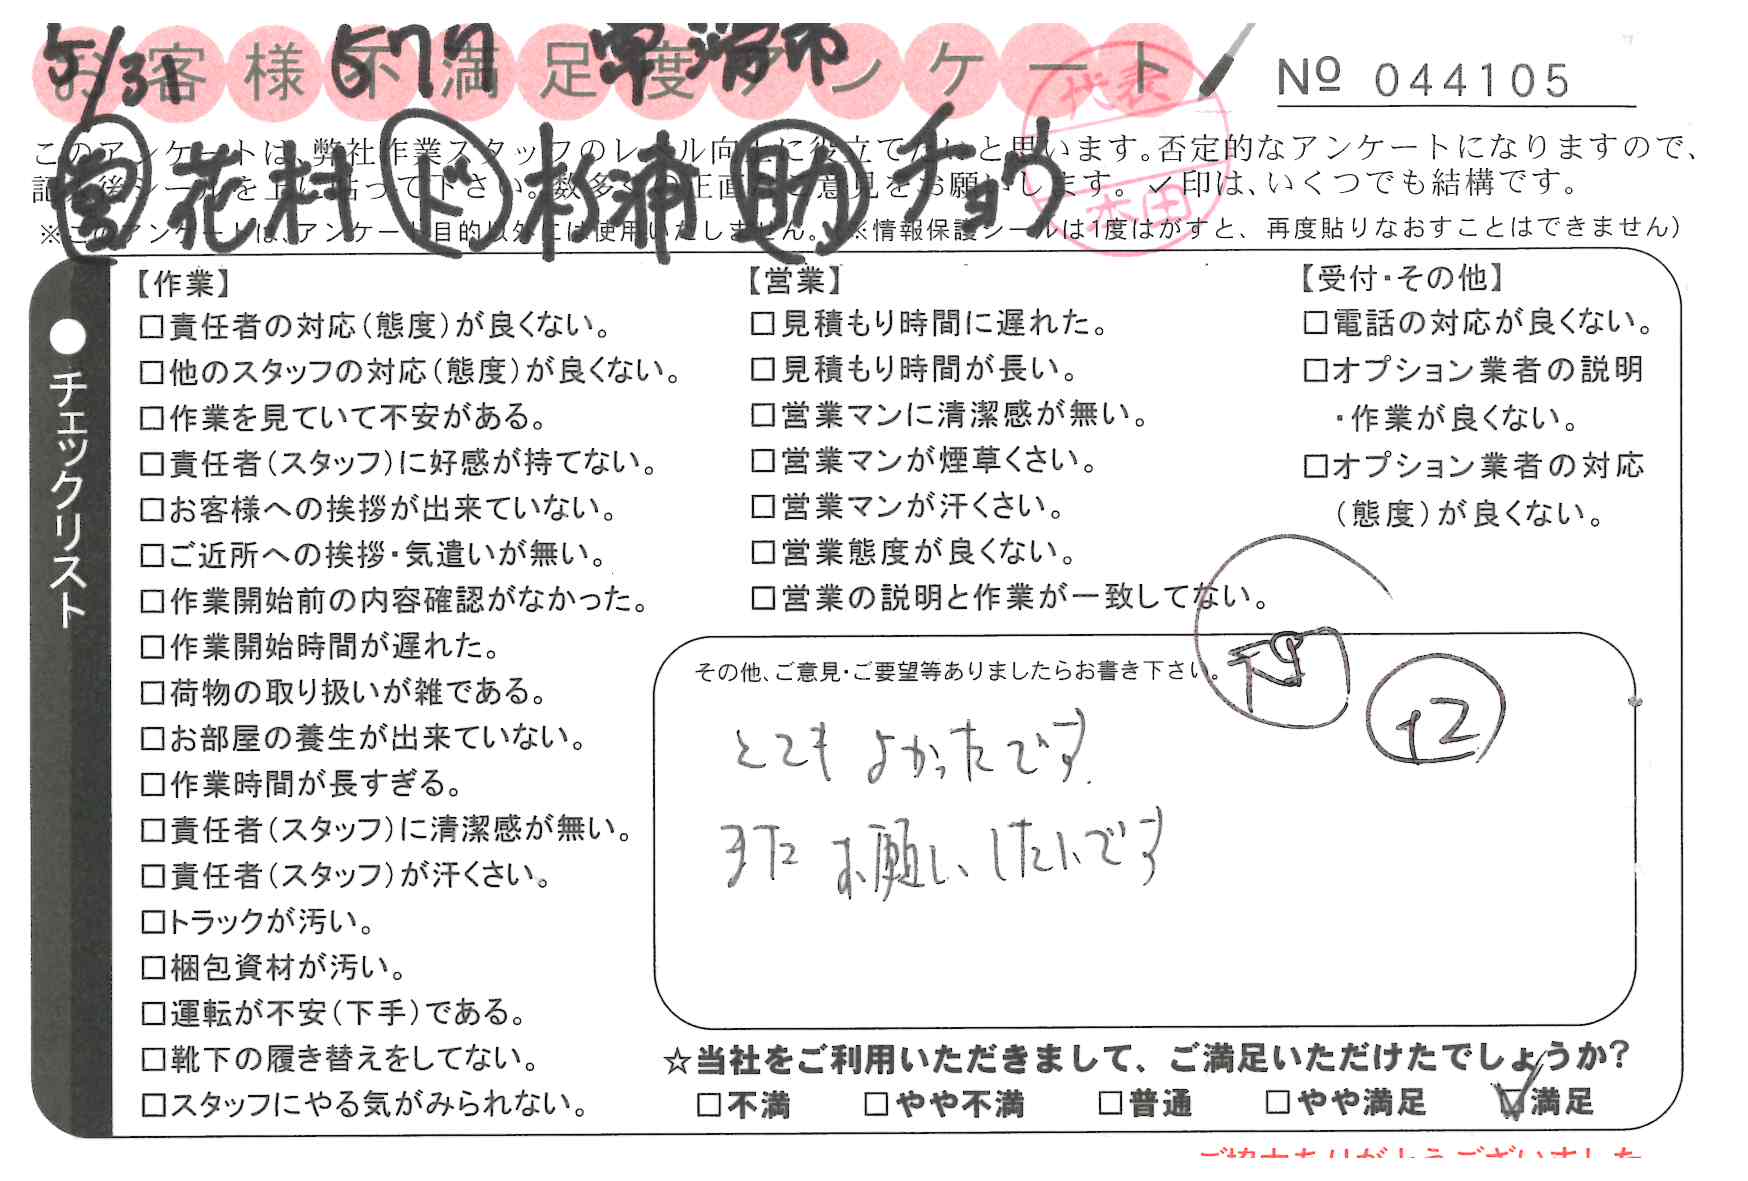 お客様不満足度アンケート
5/31 577
No 044105
代表
本田
このアンケートは、弊社作業スタッフのレベル向上に役立てたいと思います。否定的なアンケートになりますので、
記入後シールを上に貼って下さい。数多くの正直なご意見をお願いします。✓印は、いくつでも結構です。
※このアンケートは、アンケート目的以外には使用いたしません。(※情報保護シールは1度はがすと、再度貼りなおすことはできません)
営 花村 ド 杉浦 助 チョウ
●チェックリスト
【作業】
□責任者の対応(態度)が良くない。
□他のスタッフの対応(態度)が良くない。
□作業を見ていて不安がある。
□責任者(スタッフ)に好感が持てない。
□お客様への挨拶が出来ていない。
□ご近所への挨拶・気遣いが無い。
□作業開始前の内容確認がなかった。
□作業開始時間が遅れた。
□荷物の取り扱いが雑である。
□お部屋の養生が出来ていない。
□作業時間が長すぎる。
□責任者(スタッフ)に清潔感が無い。
□責任者(スタッフ)が汗くさい。
□トラックが汚い。
□梱包資材が汚い。
□運転が不安(下手)である。
□靴下の履き替えをしてない。
□スタッフにやる気がみられない。
【営業】
□見積もり時間に遅れた。
□見積もり時間が長い。
□営業マンに清潔感が無い。
□営業マンが煙草くさい。
□営業マンが汗くさい。
□営業態度が良くない。
□営業の説明と作業が一致してない。
【受付・その他】
□電話の対応が良くない。
□オプション業者の説明
・作業が良くない。
□オプション業者の対応
(態度)が良くない。
その他、ご意見・ご要望等ありましたらお書き下さい。
+2
とてもよかったです
またお願いしたいです
☆当社をご利用いただきまして、ご満足いただけたでしょうか?
□不満 □やや不満 □普通 □やや満足 ☑満足
ご協力ありがとうございました